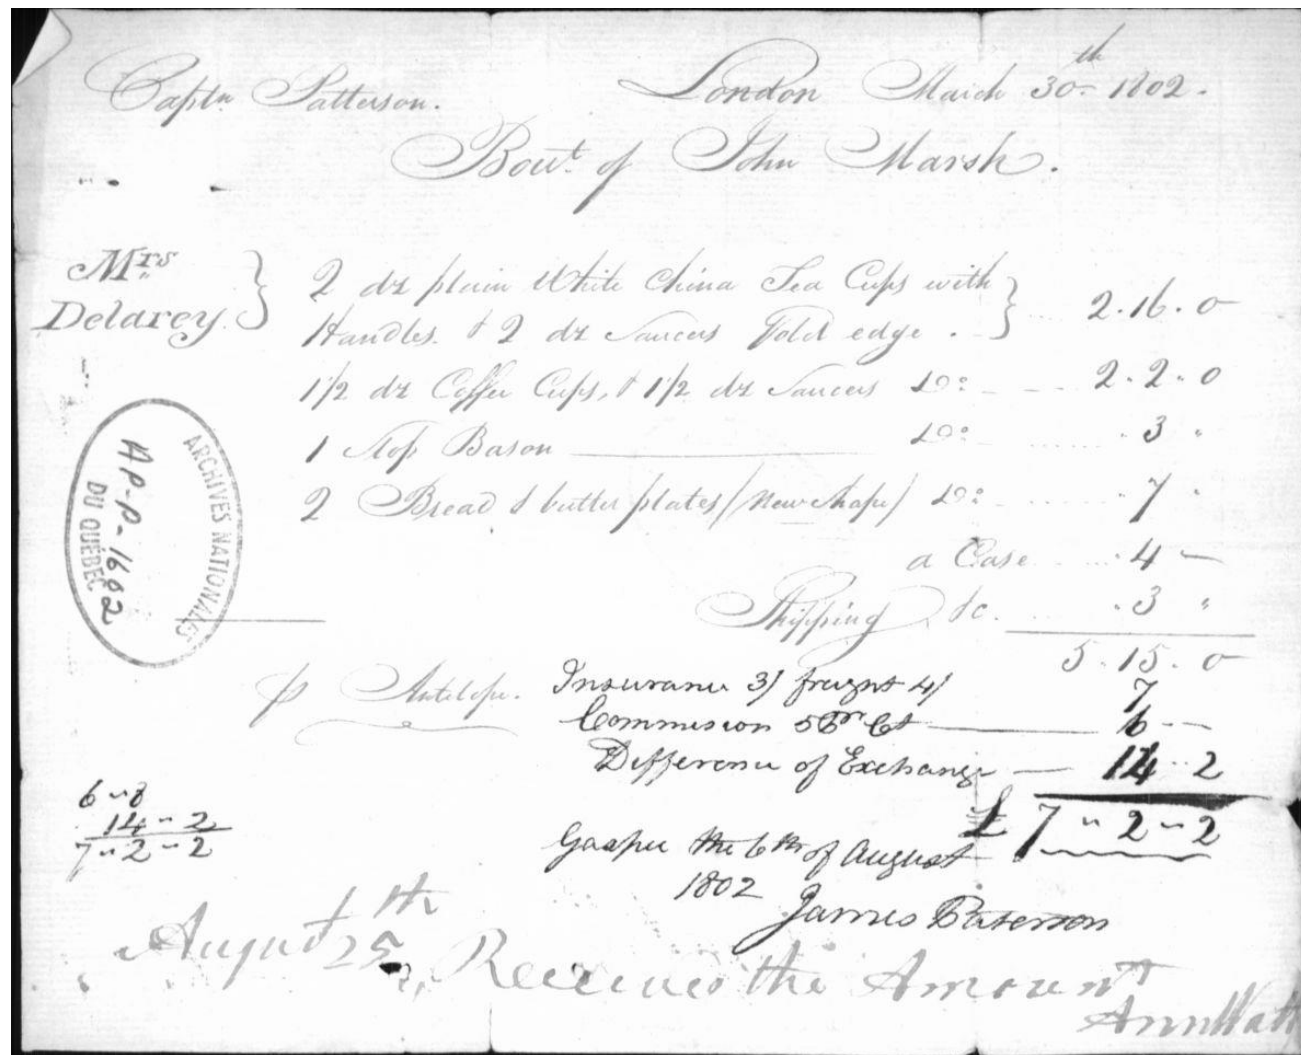 Captn Patterson. London March 30th 1802.
Bout. of John Marsh.
Mrs Delarey. } 2 dz plain White China Tea Cups with
Handles. & 2 dz Saucers Gold edge . } 2 . 16 . 0
1 1/2 dz Coffee Cups, & 1 1/2 dz Saucers Do: 2 . 2 . 0
1 Slop Bason Do: 3 "
2 Bread & butter plates / New shape / Do: 7 "
a Case 4 —
Shipping &c. 3 "
5 . 15 . 0
p Antelope. Insurance 3/ freight 4/ 7
Commision 5 Pr Ct 6 - -
Difference of Exchange 14 - 2
£ 7 - 2 - 2
6 - 8
14 - 2
7 - 2 - 2
Gaspee the 6th of August
1802
James Paterson
August 25th Received the Amount
Ann Watt
ARCHIVES NATIONALES
AP-P-1662
DU QUÉBEC